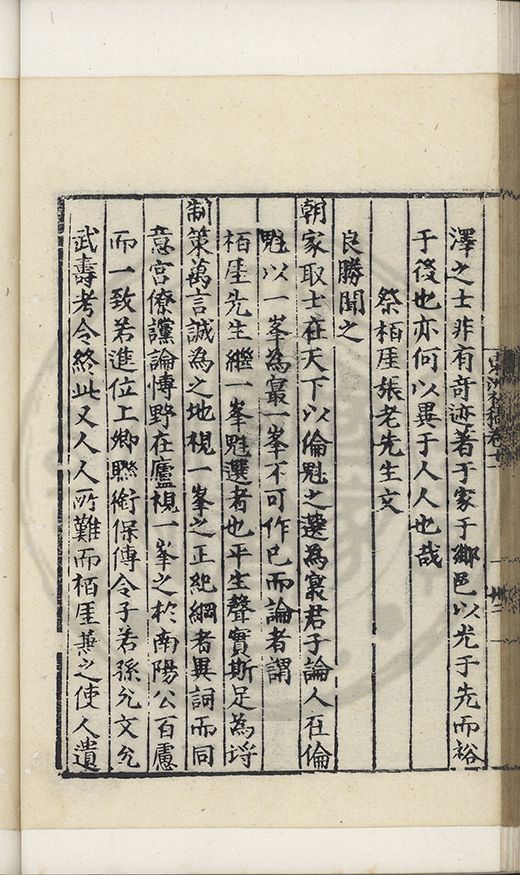 澤之士非有奇迹著于家于鄉邑以光于先而裕
于後也亦何以異于人人也哉
祭栢厓張老先生文
良勝聞之
朝家取士在天下以倫魁之選為㝡君子論人在倫
魁以一峯為㝡一峯不可作已而論者謂
栢厓先生繼一峯魁選者也平生聲實斯足為
制策萬言誠為之地視一峯之正紀綱者異詞而同
意宮僚讜論慱野在廬視一峯之於南陽公百慮
而一致若進位上卿聮銜保傅令子若孫允文允
武壽考令終此又人人所難而栢厓兼之使人遺